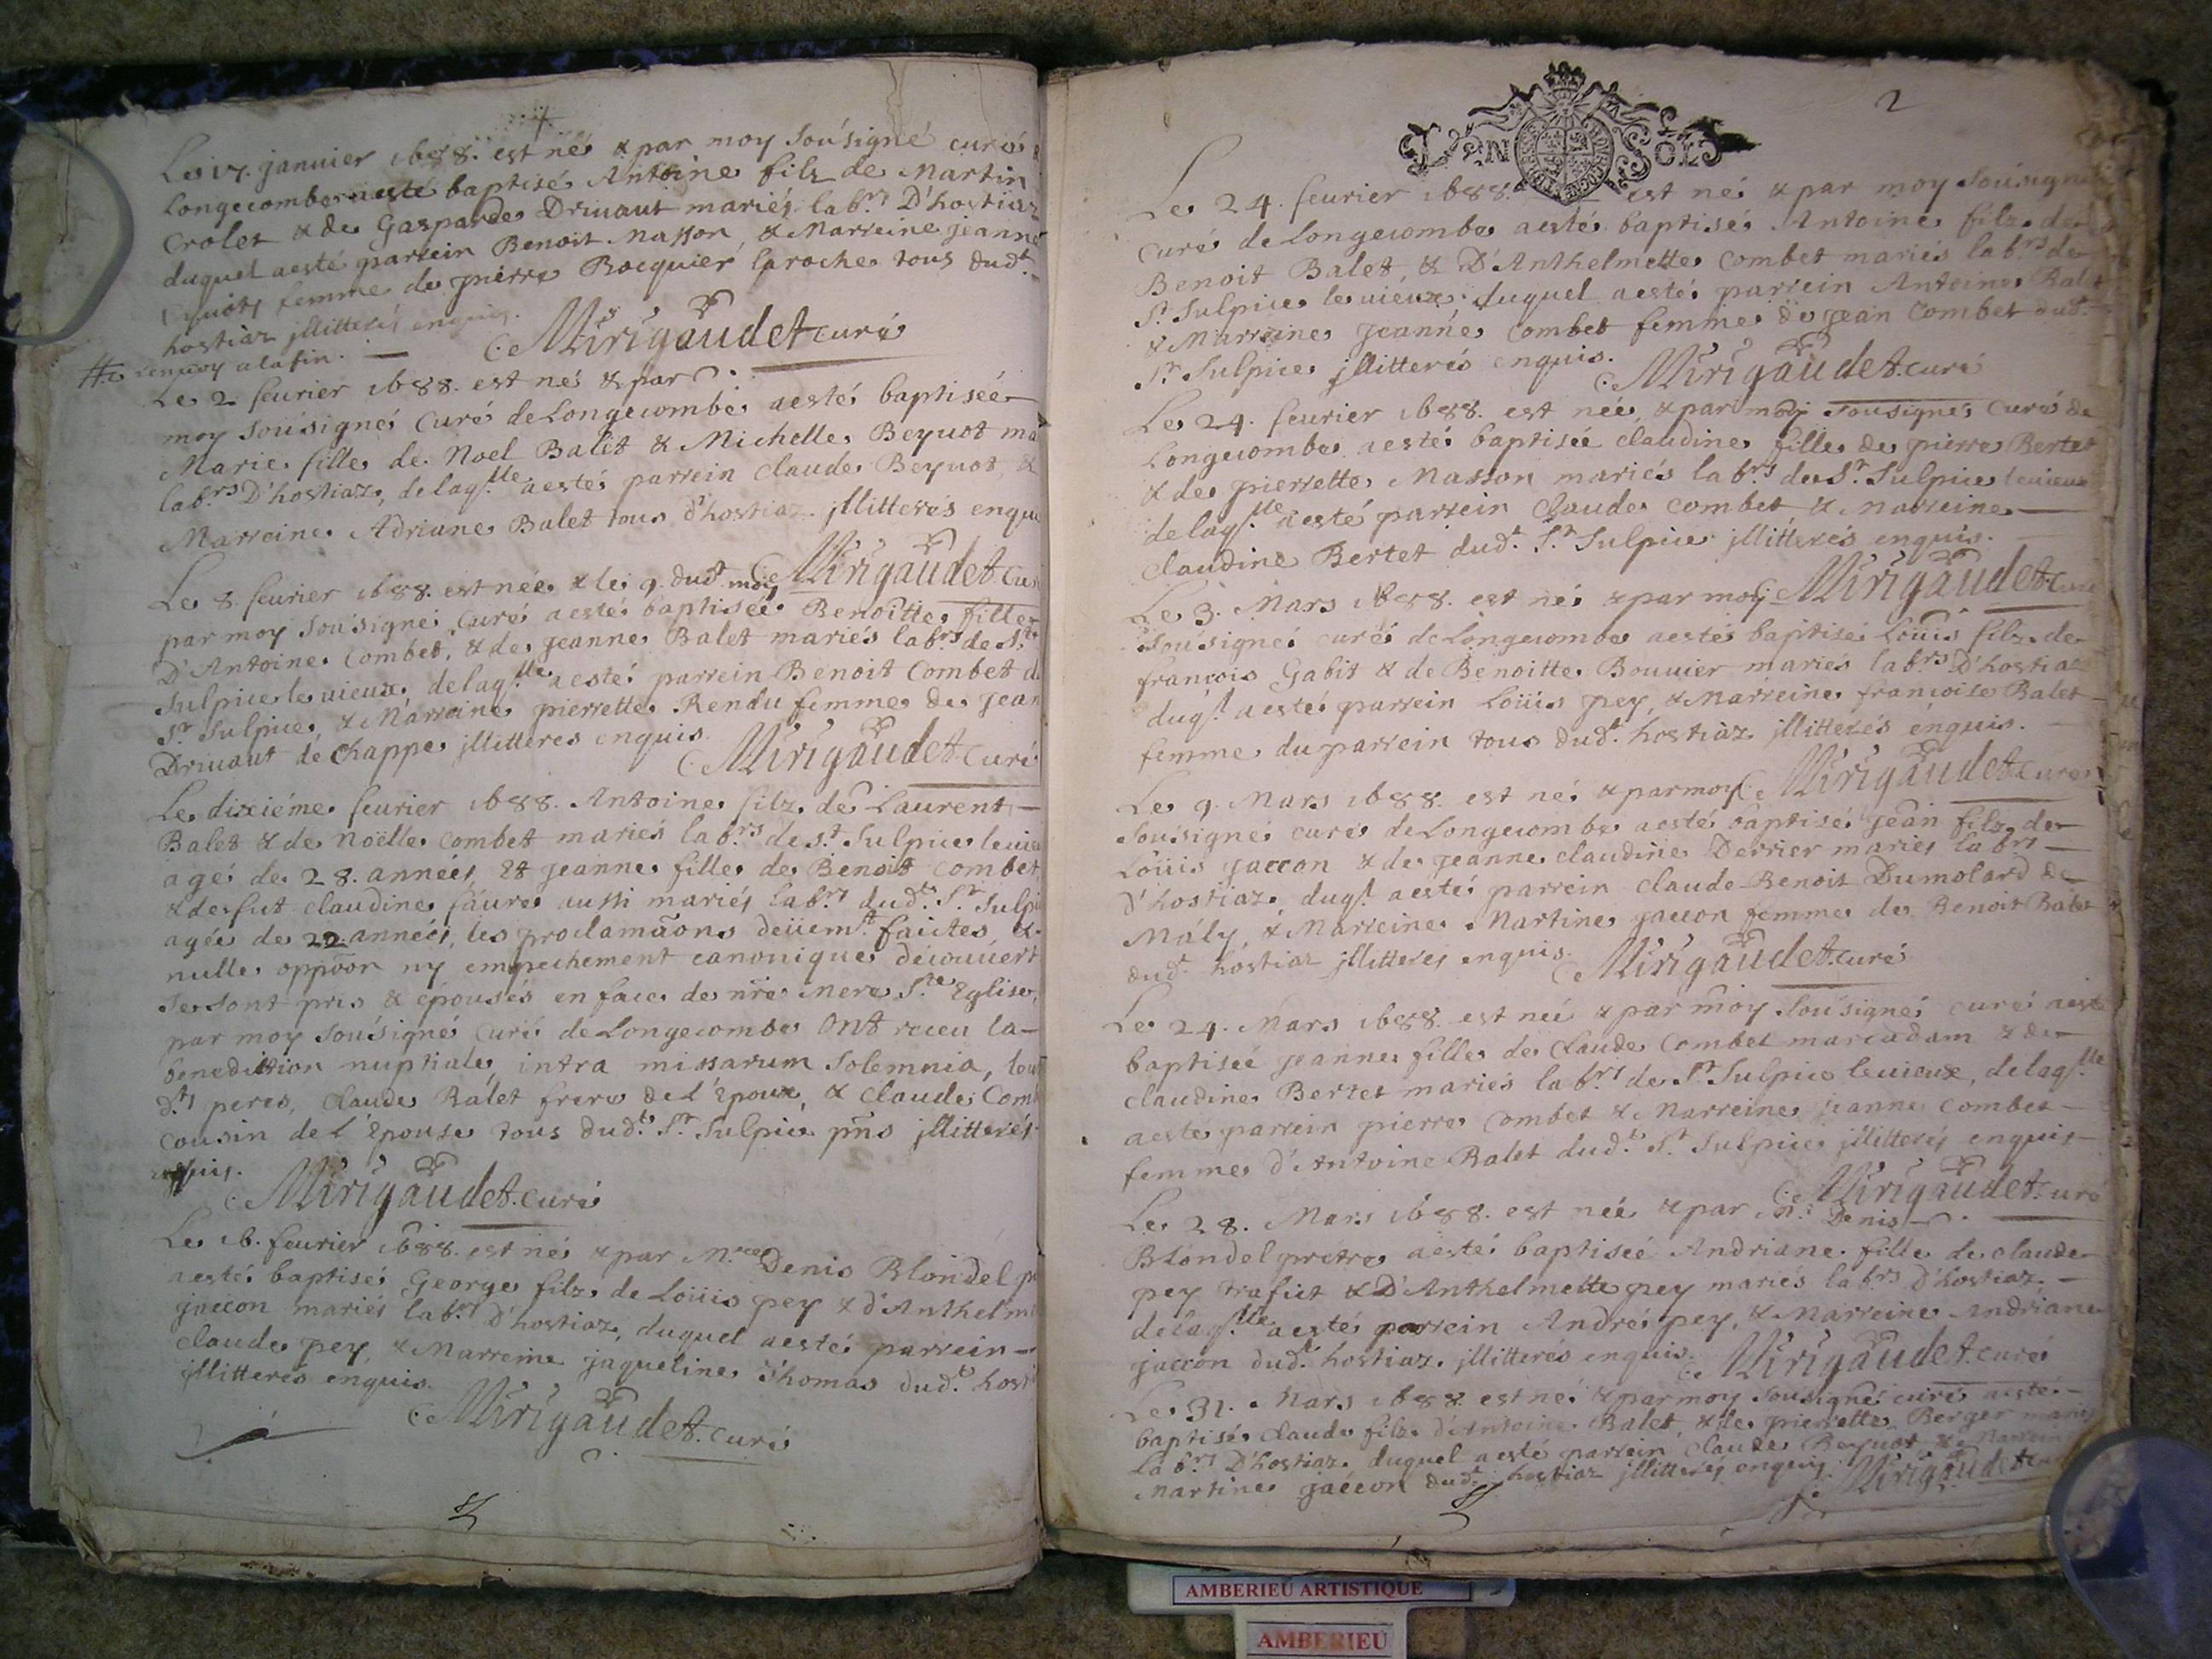 Le 17. januier 1688. est né & par moy Soúsigné curé
Longecombe aesté baptisé Antoine filz de Martin
Crolet & de Gasparde Druaut mariés lab.rs D'hostiaz
duquel aesté parrein Benoit Masson, & Marreine jeanne
femme de pierre Rocquier laroche tous dud.t
hostiaz jllitterés enquis.
Mirigaudet curé
renuoy alafin.
Le 2 feurier 1688. est né & par
moy Soúsigné Curé de Longecombe aesté baptiseé
Marie fille de Noel Balet & Michelle Beyuot ma
lab.rs D'hostiaz, delaq.lle aesté parrein Claude Beyuot, &
Marreine Adriane Balet tous d'hostiaz jllitterés enqui
Mirigaudet Cu
Le 8. feurier 1688. est née & le 9. dud.t moy
par moy Soúsigné Curé aesté baptiseé Benoitte fille
D'Antoine Combet, & de jeanne Balet mariés lab.rs de S.t
Sulpice le uieux, delaq.lle aesté parrein Benoit Combet d
S.t Sulpice, & Marreine pierrette Rendu femme de jean
Druaut de Chappe jllitteres enquis.
Mirigaudet Curé
Le dixiéme feurier 1688. Antoine filz de Laurent
Balet & de Noëlle Combet mariés lab.rs de S.t Sulpice leuieu
agé de 28. années, Et jeanne fille de Benoit Combet,
& desfut Claudine faure aussi mariés lab.rs dud.t S.t Sulpi
agée de 22. années, les proclamãons deüem.t faictes &
nulle oppõon ny empechement canonique découuért
Se sont pris & épousés en face de nre mere S.te Eglise,
par moy Soúsigné Curé de Longecombe Ont receu la
benediction nuptiale, intra missarum Solemnia, leur
d.ts peres, Claude Balet frere de l'Epoux, & Claude Com
Cousin de l'Epouse tous dud.t S.t Sulpice pñs jllitterés
enquis.
Mirigaudet Curé
Le 16. feurier 1688. est né & par M.re Denis Blondel p
aesté baptisé George filz de Loüis pey & d'Anthelm
jaccon mariés lab.rs D'hostiaz, duquel aesté parrein
Claude pey, & Marreine jaqueline Thomas dud.t hosti
jllitterés enquis.
Mirigaudet Curé
2
VN SOL
Le 24. feurier 1688. est né & par moy Soúsigné
Curé de Longecombe aesté baptisé Antoine filz de
Benoit Balet, & D'Anthelmette Combet mariés lab.rs de
S.t Sulpice le uieux, duquel aesté parrein Antoine Balet
& Marreine jeanne Combet femme de jean Combet dud.t
S.t Sulpice jllitterés enquis.
Mirigaudet Curé
Le 24. feurier 1688. est née, & par moy Sousigné Curé de
Longecombe aesté baptiseé Claudine fille de pierre Bertet
& de pierrette Masson mariés lab.rs de S.t Sulpice leuieux
delaq.lle aesté parrein Claude Combet & Marreine
Claudine Bertet dud.t S.t Sulpice jllitterés enquis.
Mirigaudet Curé
Le 3. Mars 1688. est né & par moy
Soúsigné curé de Longecombe aesté baptisé Loüis filz de
francois Gabit & de Benoitte Bouuier mariés lab.rs D'hostiaz
duq.l aesté parrein Loüis pey, & Marreine francoise Balet
femme du parrein tous dud.t hostiaz jllitterés enquis.
Mirigaudet Curé
Le 9. Mars 1688. est né & par moy
Soúsigné curé de Longecombe aesté baptisé jean filz de
Loüis jaccon & de jeanne claudine Derrier mariés lab.rs
d'hostiaz duq.l aesté parrein Claude Benoit Dumolard de
Mály, & Marreine Martine jaccon femme de Benoit Balet
dud.t hostiaz jllitterés enquis.
Mirigaudet Curé
Le 24. Mars 1688. est neé & par moy Soúsigné curé aesté
baptiseé jeanne fille de Claude Combet marcadam & de
Claudine Bertet mariés lab.rs de S.t Sulpice leuieux, delaq.lle
aesté parrein pierre Combet & Marreine jeanne Combet
femme d'Antoine Balet dud.t S.t Sulpice jllitterés enquis
Mirigaudet Curé
Le 28. Mars 1688. est neé & par M.re Denis
Blondel pretre aesté baptiseé Andriane fille de Claude
pey trafict & D'Anthelmette pey mariés lab.rs d'hostiaz.
delaq.lle aesté parrein André pey, & Marreine Andriane
jaccon dud.t hostiaz jllitterés enquis.
Mirigaudet Curé
Le 31. Mars 1688. est né & par moy Sousigné curé aesté
baptisé Claude filz d'Antoine Balet, & de pierrette Berger mariés
lab.rs D'hostiaz duquel aesté parrein Claude Beyuot & Marreine
Martine jaccon dud.t hostiaz jllitterés enquis.
Mirigaudet Curé
AMBERIEU ARTISTIQUE
AMBERIEU